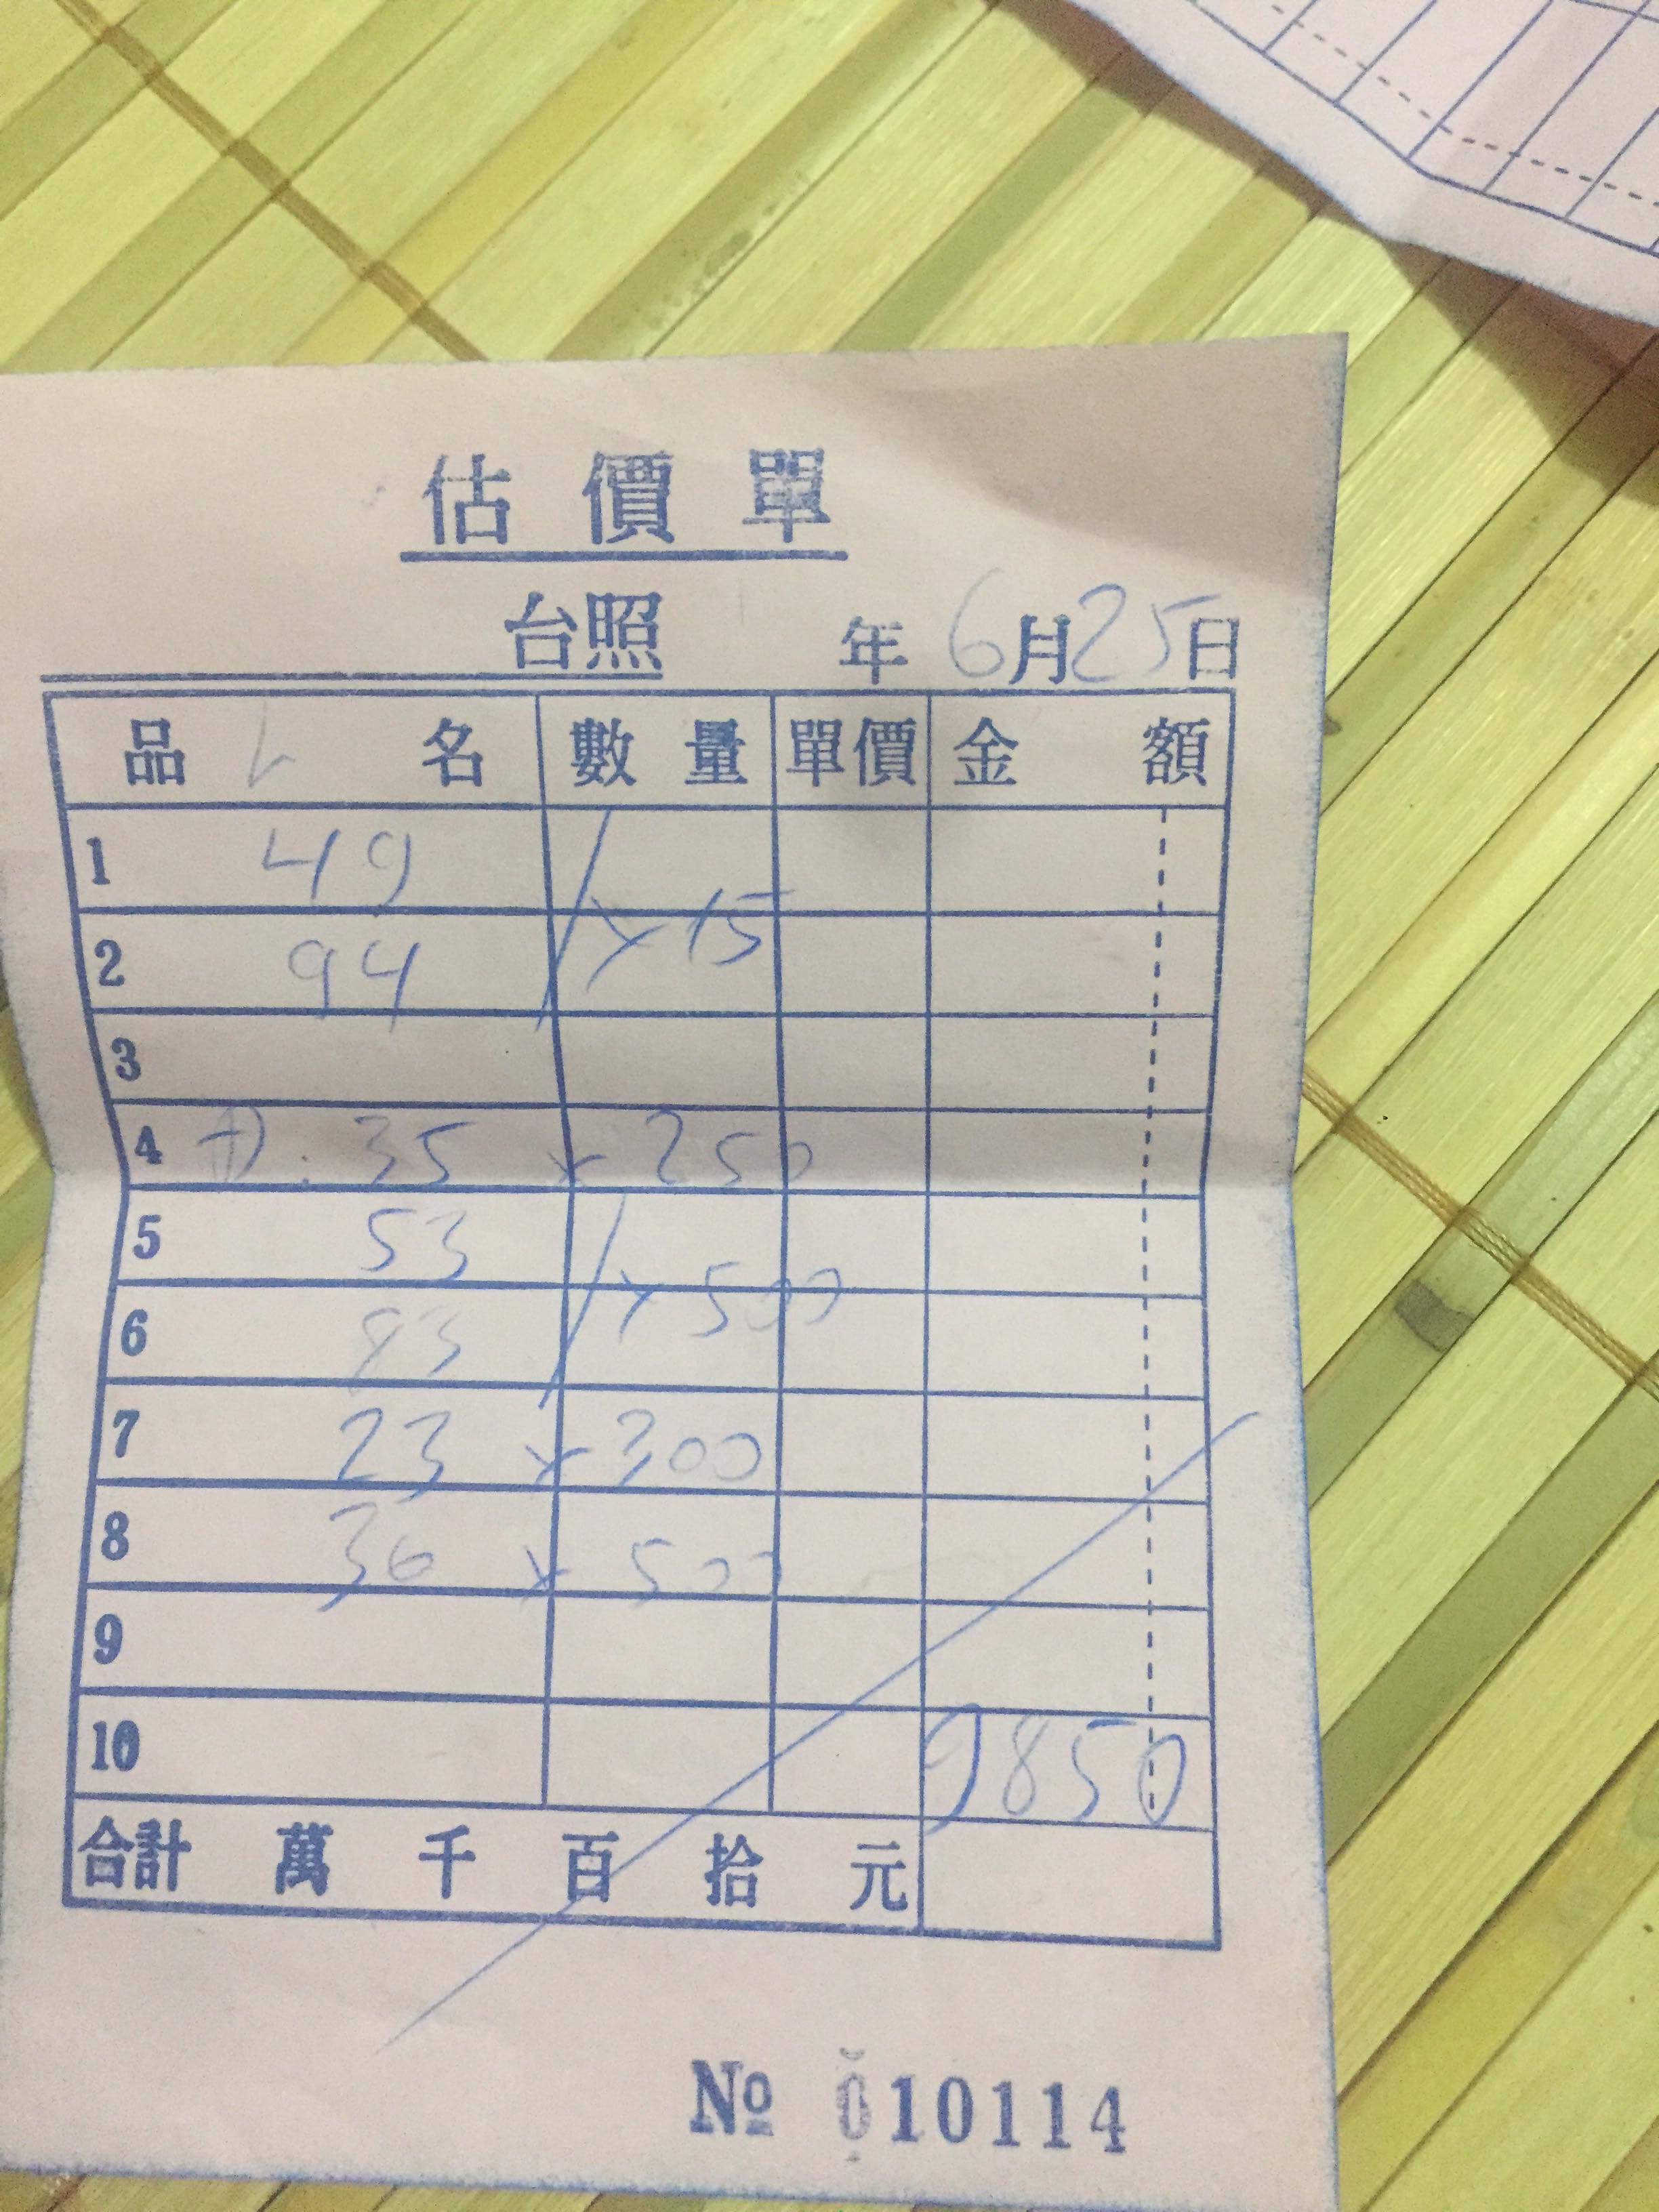 估價單
台照 年 6月25日
品名 數量 單價 金額
1 49
x 15
2 94
3
4 35 x 250
5 53
x 500
6 93
7 23 x 300
8 36 x 500
9
10 9850
合計 萬 千 百 拾 元
№ 010114